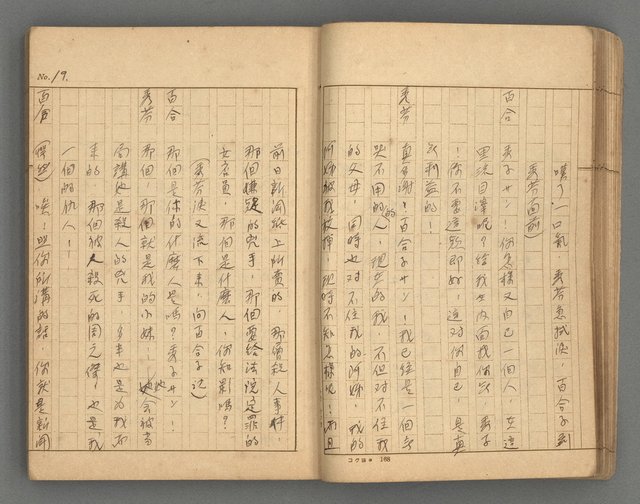 嘆了一口氣 秀芳急拭淚,百合子到
秀芳面前)
百合 秀子サン!你怎樣又自己一個人,在這
里流目滓呢?給我四面找你 秀子
!你不要這款即好,這对你自己,是真
的!
秀芳 真多謝!百合子サン!我已經是一個
不用的人,現在的我,不但对不住我
的父母,同時也对不住我的阿姊,我的
現時不知怎樣呢!而且
コクヨ 168
No. 19.
前日新聞紙上所賣的,那層殺人事件,
那個嫌疑的兇手,那個要給法院定罪的
女客員,那個是什麼人,你知影嗎?
(秀芳淚又流下來,向百合子說)
百合 那個是你的什麼人是嗎?秀子サン!
秀芳 那個,那個就是我的小妹!她會被当
局講她是殺人的兇手,多半也是为我而
來的,那個被人殺死的周元傑,也是我
一個的仇人!
百合 (愕然)噢!照你所講的話,你就是新聞